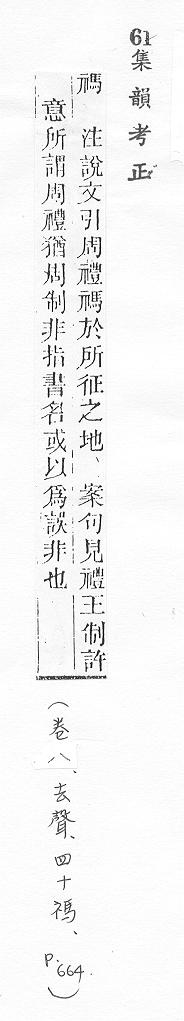 61集韻考正
禡 注說文引周禮禡於所征之地、案句見禮王制許
意所謂周禮猶周制非指書名或以爲誤非也
(卷八、去聲、四十禡、p.664.)